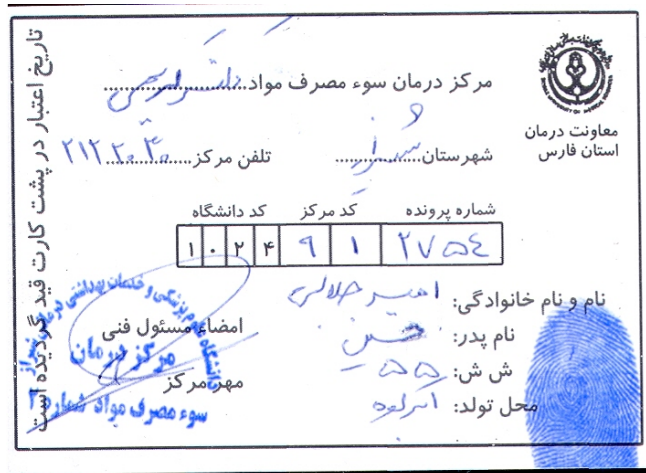 مرکز درمان سوء مصرف مواد دکتر کریمی
معاونت درمان
استان فارس
شهرستان شیراز تلفن مرکز ۲۱۲۲۰۳۰
شماره پرونده کد مرکز کد دانشگاه
۲۷۵۴ ۹۱ ۱۰۲۴
نام و نام خانوادگی: امیر جلالی
نام پدر: حسن
ش ش: ۵۵
محل تولد:
امضاء مسئول فنی
مهر مرکز
دانشگاه علوم پزشکی و خدمات بهداشتی درمانی شیراز
مرکز درمان
سوء مصرف مواد شماره ۲
تاریخ اعتبار در پشت کارت قید گردیده است